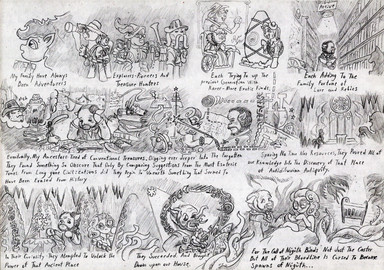 My Family Have Always
Been Adventurers
Explorers-Pioneers And
Treasure Hunters
Each Trying To Up The
previous Generation With
Rarer-More Exotic Finds
Each Adding To The
Family Fortune of
Lore and Nobles
Eventually, My Ancestors Tired of Conventional Treasures, Digging ever deeper Into The Forgotten
They Found Something So Obscure That Only By Comparing Suggestions From The Most Esoteric
Tomes From Long gone Civilizations did They Begin To Unearth Something That Seemed To
Have Been Erased From History
Sparing No Time Nor Resources, They Poured All of
Their Knowledge Into The Discovery of That Place
of Antediluvian Antiquity.
In Their Curiosity They Attempted To Unlock The
Power of That Ancient Place
They Succeeded, And Brought
Doom upon our House
For The Call of Night Binds Not Just The Caster
But All of Their Bloodline Is Cursed To Become
Spawns of Night...